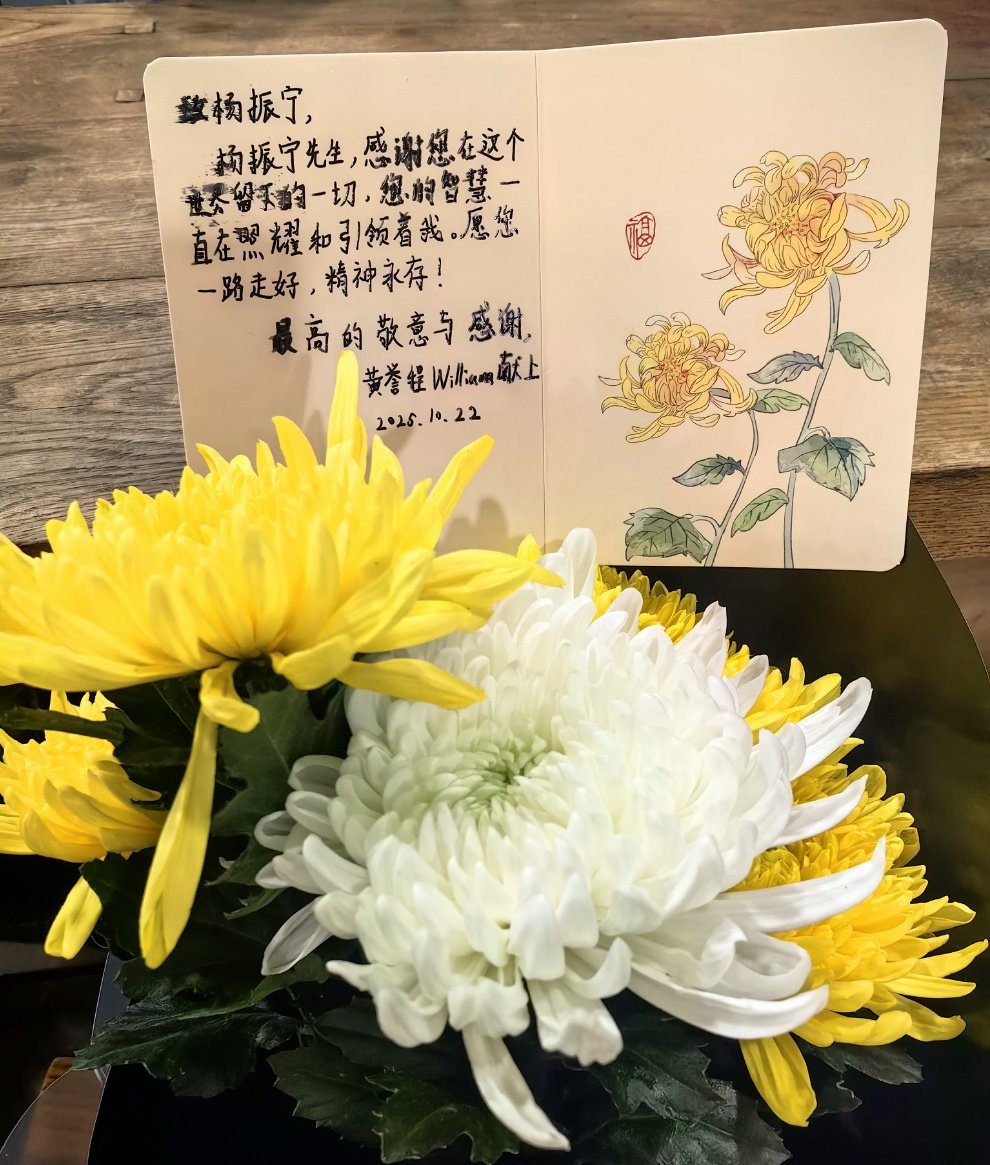 致杨振宁,
杨振宁先生,感谢您在这个
世界留下的一切,您的智慧一
直在照耀和引领着我。愿您
一路走好,精神永存!
最高的敬意与感谢,
黄誉程William献上
2025.10.22
福